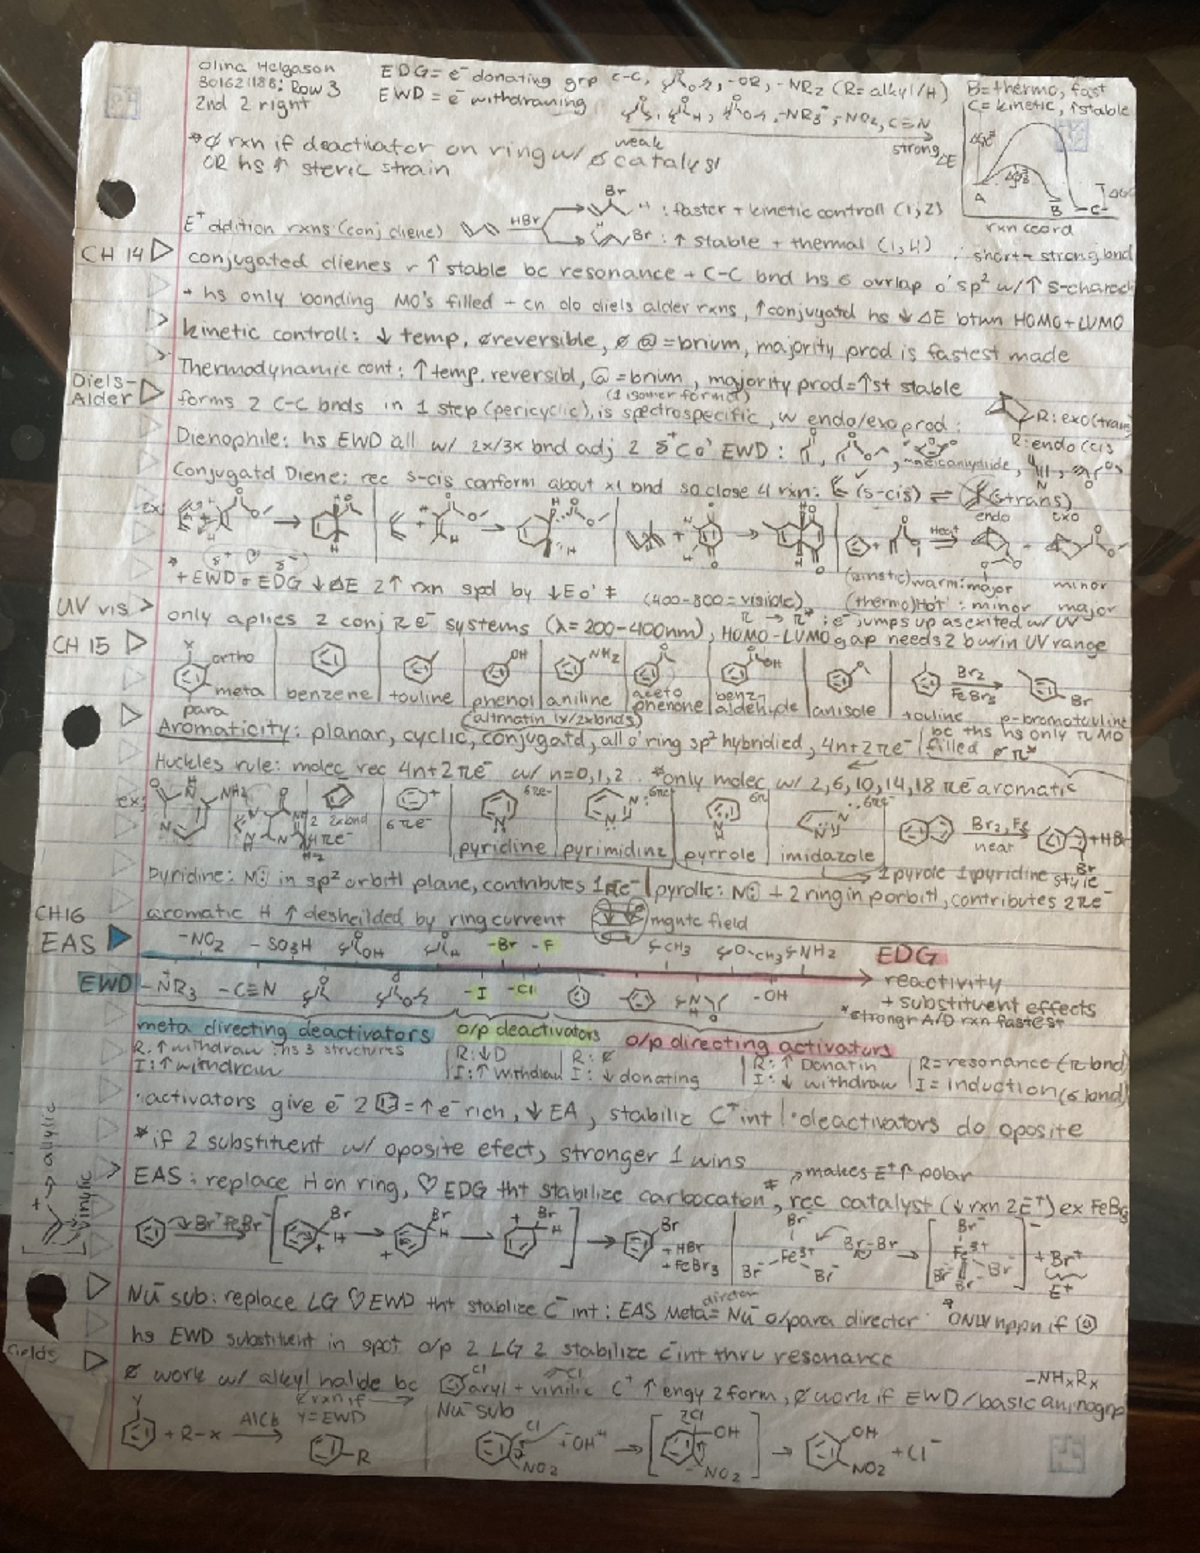 Olina Helgason
301621188: Row 3
2nd 2 right
EDG = e⁻ donating grp C-C, -OR, -NR₂ (R=alkyl/H)
EWD = e⁻ withdrawing -NR₃⁺, -NO₂, C≡N
weak strong
B=thermo, fast
C=kinetic, ↑stable
ΔE
A B C
rxn coord
*∅ rxn if deactivator on ring w/ catalyst
OR hs ↑ steric strain
E⁺ addition rxns (conj diene) HBr Br H : faster + kinetic controll (1,2)
Br : ↑ stable + thermal (1,4)
: short + strong bnd
CH 14 conjugated dienes r ↑ stable bc resonance + C-C bnd hs σ ovrlap o' sp² w/ ↑ s-charact
+ hs only bonding MO's filled - cn do diels alder rxns, ↑conjugatd hs ↓ ΔE btwn HOMO+LUMO
> kinetic controll: ↓ temp, ∅reversible, ∅ @=brium, majority prod is fastest made
> Thermodynamic cont: ↑temp, reversibl, @=brium, majority prod=↑st stable
Diels-Alder
(1 isomer formed)
forms 2 C-C bnds in 1 step (pericyclic), is spectrospecific, w endo/exo prod:
R: exo(trans)
R: endo (cis
Dienophile: hs EWD all w/ 2x/3x bnd adj 2 δ⁺C o' EWD:
Conjugatd Diene: rec s-cis conform about x1 bnd so close 4 rxn: (s-cis) ⇌ (s-trans)
ex
Heat endo exo
(kinetic) warm: major minor
(thermo) Hot : minor major
* δ⁺ ♡ δ⁻
+ EWD or EDG ↓ ΔE 2↑ rxn spd by ↓E o' ‡ (400-800 = visible)
π → π* : e⁻ jumps up as exited w/ UV
UV vis > only aplies 2 conj πe⁻ systems (λ=200-400nm), HOMO-LUMO gap needs 2 b w/in UV range
CH 15
X ortho
meta
para
benzene
touline
OH phenol
NH₂ aniline
aceto phenone
OH benz- aldehyde
anisole
touline Br₂ FeBr₃ Br p-bromotouline
(altrnatin 1x/2xbnds)
bc ths hs only π MO
Aromaticity: planar, cyclic, conjugatd, all o' ring sp² hybridied, 4n+2πe⁻ filled ∅ π*
Huckles rule: molec rec 4n+2πe⁻ w/ n=0,1,2 *only molec w/ 2,6,10,14,18 πe aromatic
ex:
NH₂
2 2xbnd
4πe⁻
6πe⁻
6πe⁻
pyridine pyrimidine pyrrole imidazole
Br₂, Fe Br +HBr
1 pyrole 1 pyridine style
Pyridine: N: in sp² orbitl plane, contributes 1πe⁻ | pyrolle: N: + 2 ring in p orbitl, contributes 2πe⁻
CH16 aromatic H ↑ desheilded by ring current mgntc field
EAS -NO₂ -SO₃H OH H -Br -F CH₃ O-CH₃ NH₂ EDG
EWD -N⁺R₃ -C≡N -I -Cl -OH
reactivity
+ substituent effects
*strongr A/D rxn fastest
meta directing deactivators o/p deactivators o/p directing activators
R: ↑ withdraw :hs 3 structures
I: ↑ withdraw
R: ↓D
I: ↑ withdraw
R: ∅
I: ↓ donating
R: ↑ Donatin
I: ↓ withdraw
R=resonance (π bnd)
I = induction (σ bond)
·activators give e⁻ 2 = ↑e⁻rich, ↓ EA, stabiliz C⁺int | ·deactivators do oposite
*if 2 substituent w/ oposite efect, stronger 1 wins
* ↗ makes E⁺ ↑ polar
> EAS: replace H on ring, ♡ EDG tht stabilize carbocaton, rec catalyst (↓ rxn 2E⁺) ex FeBr₃
+ → allylic
vinylic
Br-FeBr Br H Br H Br H Br
+HBr
+FeBr₃
Br⁻ Fe³⁺ Br⁻ Br⁻ Br-Br Br⁻ Fe³⁺ Br⁻ Br⁻ Br⁻ + Br⁺
E⁺
director
Nu⁻ sub: replace LG ♡ EWD tht stablize C⁻ int: EAS Meta = Nu⁻ o/para director · *ONLY hppn if
hs EWD substituent in spot o/p 2 LG 2 stabilize c⁻int thru resonance
∅ work w/ alkyl halide bc Cl aryl + vinilic Cl C⁺ ↑ engy 2 form, ∅ work if EWD/basic amino grp
-NHₓRₓ
Y + R-x AlCl₃ ∅ rxn if Y=EWD R
Nu⁻ sub
Cl NO₂ + ⁻OH Cl OH NO₂ OH NO₂ + Cl⁻